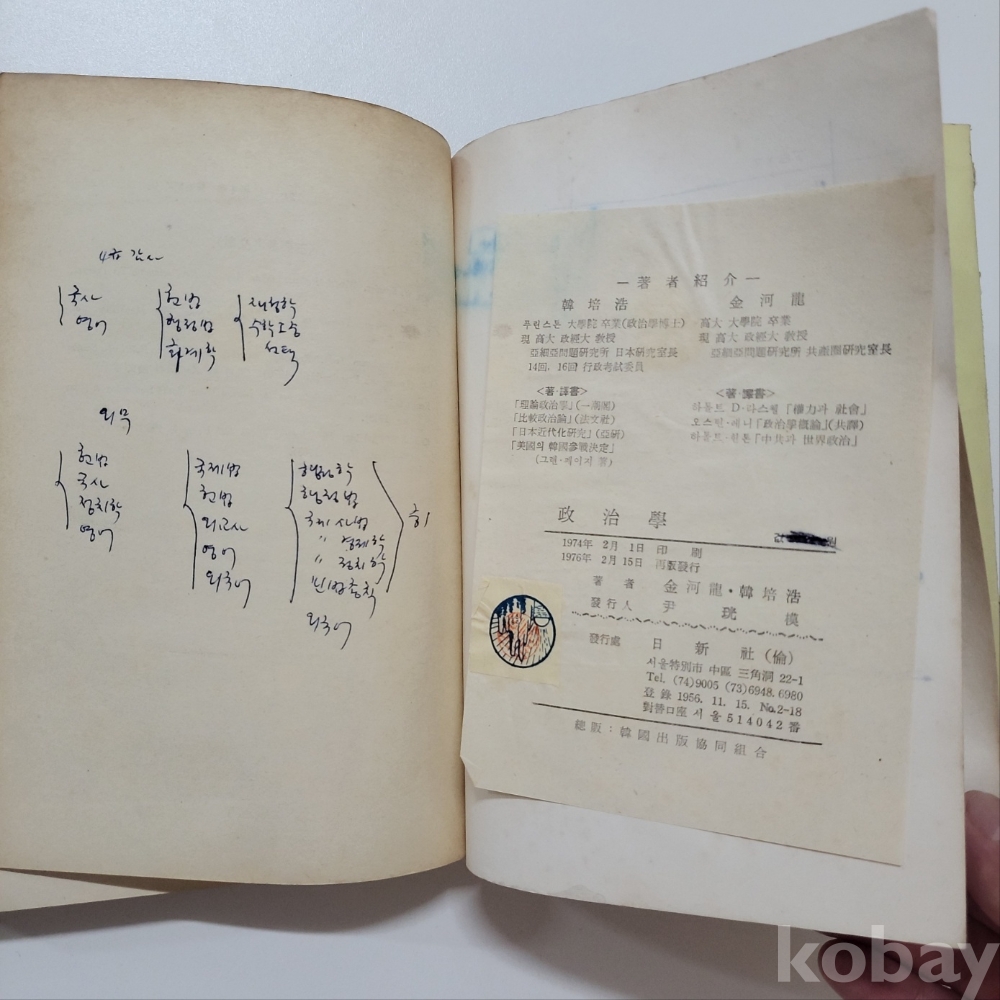 4급 감사
국사
영어
헌법
행정법
회계학
재정학
수학소송
선택
외무
헌법
국사
정치학
영어
국제법
헌법
외교사
영어
외국어
행정학
행정법
국제사법
〃 경제학
〃 정치학
민법총칙
외국어
—著者紹介—
韓培浩
프린스톤 大學院 卒業(政治學博士)
現 高大 政經大 敎授
亞細亞問題硏究所 日本硏究室長
14回, 16回 行政考試委員
<著·譯書>
「理論政治學」(一潮閣)
「比較政治論」(法文社)
「日本近代化硏究」(亞硏)
「美國의 韓國參戰決定」
(그렌·페이지 著)
金河龍
高大 大學院 卒業
現 高大 政經大 敎授
亞細亞問題硏究所 共産圈硏究室長
<著·譯書>
하롤트 D·라스웰「權力과 社會」
오스틴·래니「政治學槪論」(共譯)
하롤트·힌톤「中共과 世界政治」
政治學
원
1974年 2月 1日 印刷
1976年 2月 15日 再版發行
著者 金河龍·韓培浩
發行人 尹珖模
發行處 日新社(倫)
서울特別市 中區 三角洞 22-1
Tel. (74)9005 (73)6948. 6980
登錄 1956. 11. 15. No.2-18
對替口座 서울514042番
總販:韓國出版協同組合
kobay